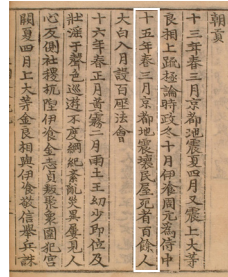 朝貢
十三年春三月京都地震夏四月又震上大等
良相上疏極論時政冬十月伊飡周元爲侍中
十五年春三月京都地震壞民屋死者百餘人
大白入月設百座法會
十六年春正月黃霧二月雨土王幼少即位及
壯淫于聲色巡遊不度綱紀紊亂災異屢見人
心反側社稷杌隉伊飡金志貞叛聚衆圍犯宮
闕夏四月上大等金良相與伊飡敬信擧兵誅